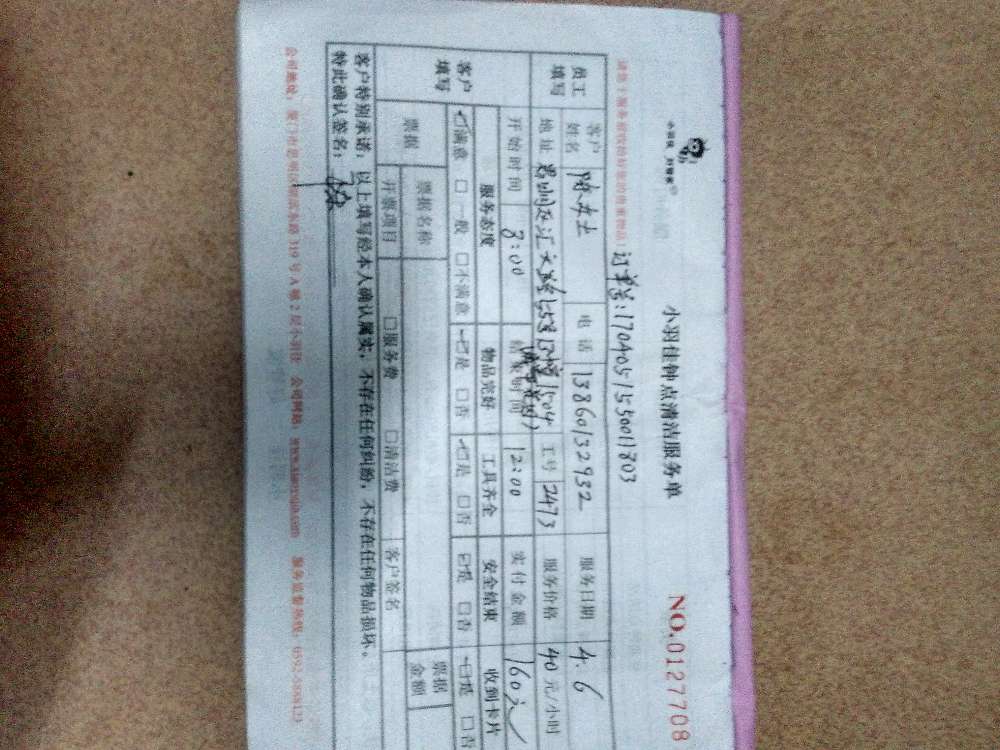 小羽佳 好管家
小羽佳钟点清洁服务单
NO.0127708
订单号:170405155001803
员工填写
客户姓名 陈女士 电话 13860132932 服务日期 4.6
地址 504 工号 2473 服务价格 40元/小时
开始时间 8:00 结束时间 12:00 实付金额 160元
客户填写
服务态度 物品完好 工具齐全 安全结束 收到卡片
☑满意 □一般 □不满意 ☑是 □否 ☑是 □否 ☑是 □否 ☑是 □否
票据 票据名称 票据金额
开票项目 □服务费 □清洁费 客户签名
客户特别承诺:以上填写经本人确认属实,不存在任何纠纷,不存在任何物品损坏。
特此确认签名:
公司地址:厦门市思明区 319号A幢2层小羽佳 公司网站: 服务监督热线: